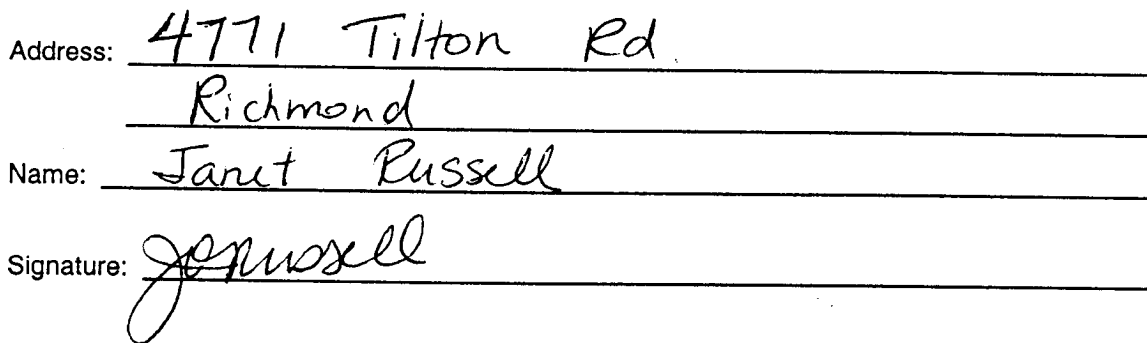 Address: 4771 Tilton Rd
Richmond
Name: Janet Russell
Signature: